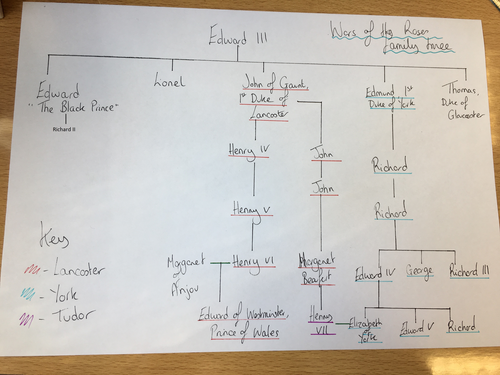 Edward III
Wars of the Roses
family tree
Edward
"The Black Prince"
Richard II
Lionel
John of Gaunt,
1st Duke of
Lancaster
Edmund 1st
Duke of York
Thomas,
Duke of
Gloucester
Henry IV
John
Richard
John
Henry V
Richard
Key
- Lancaster
- York
- Tudor
Margaret
of
Anjou
Henry VI
Margaret
Beaufort
Edward IV
George
Richard III
Edward of Westminster,
Prince of Wales
Henry
VII
Elizabeth
of
York
Edward V
Richard